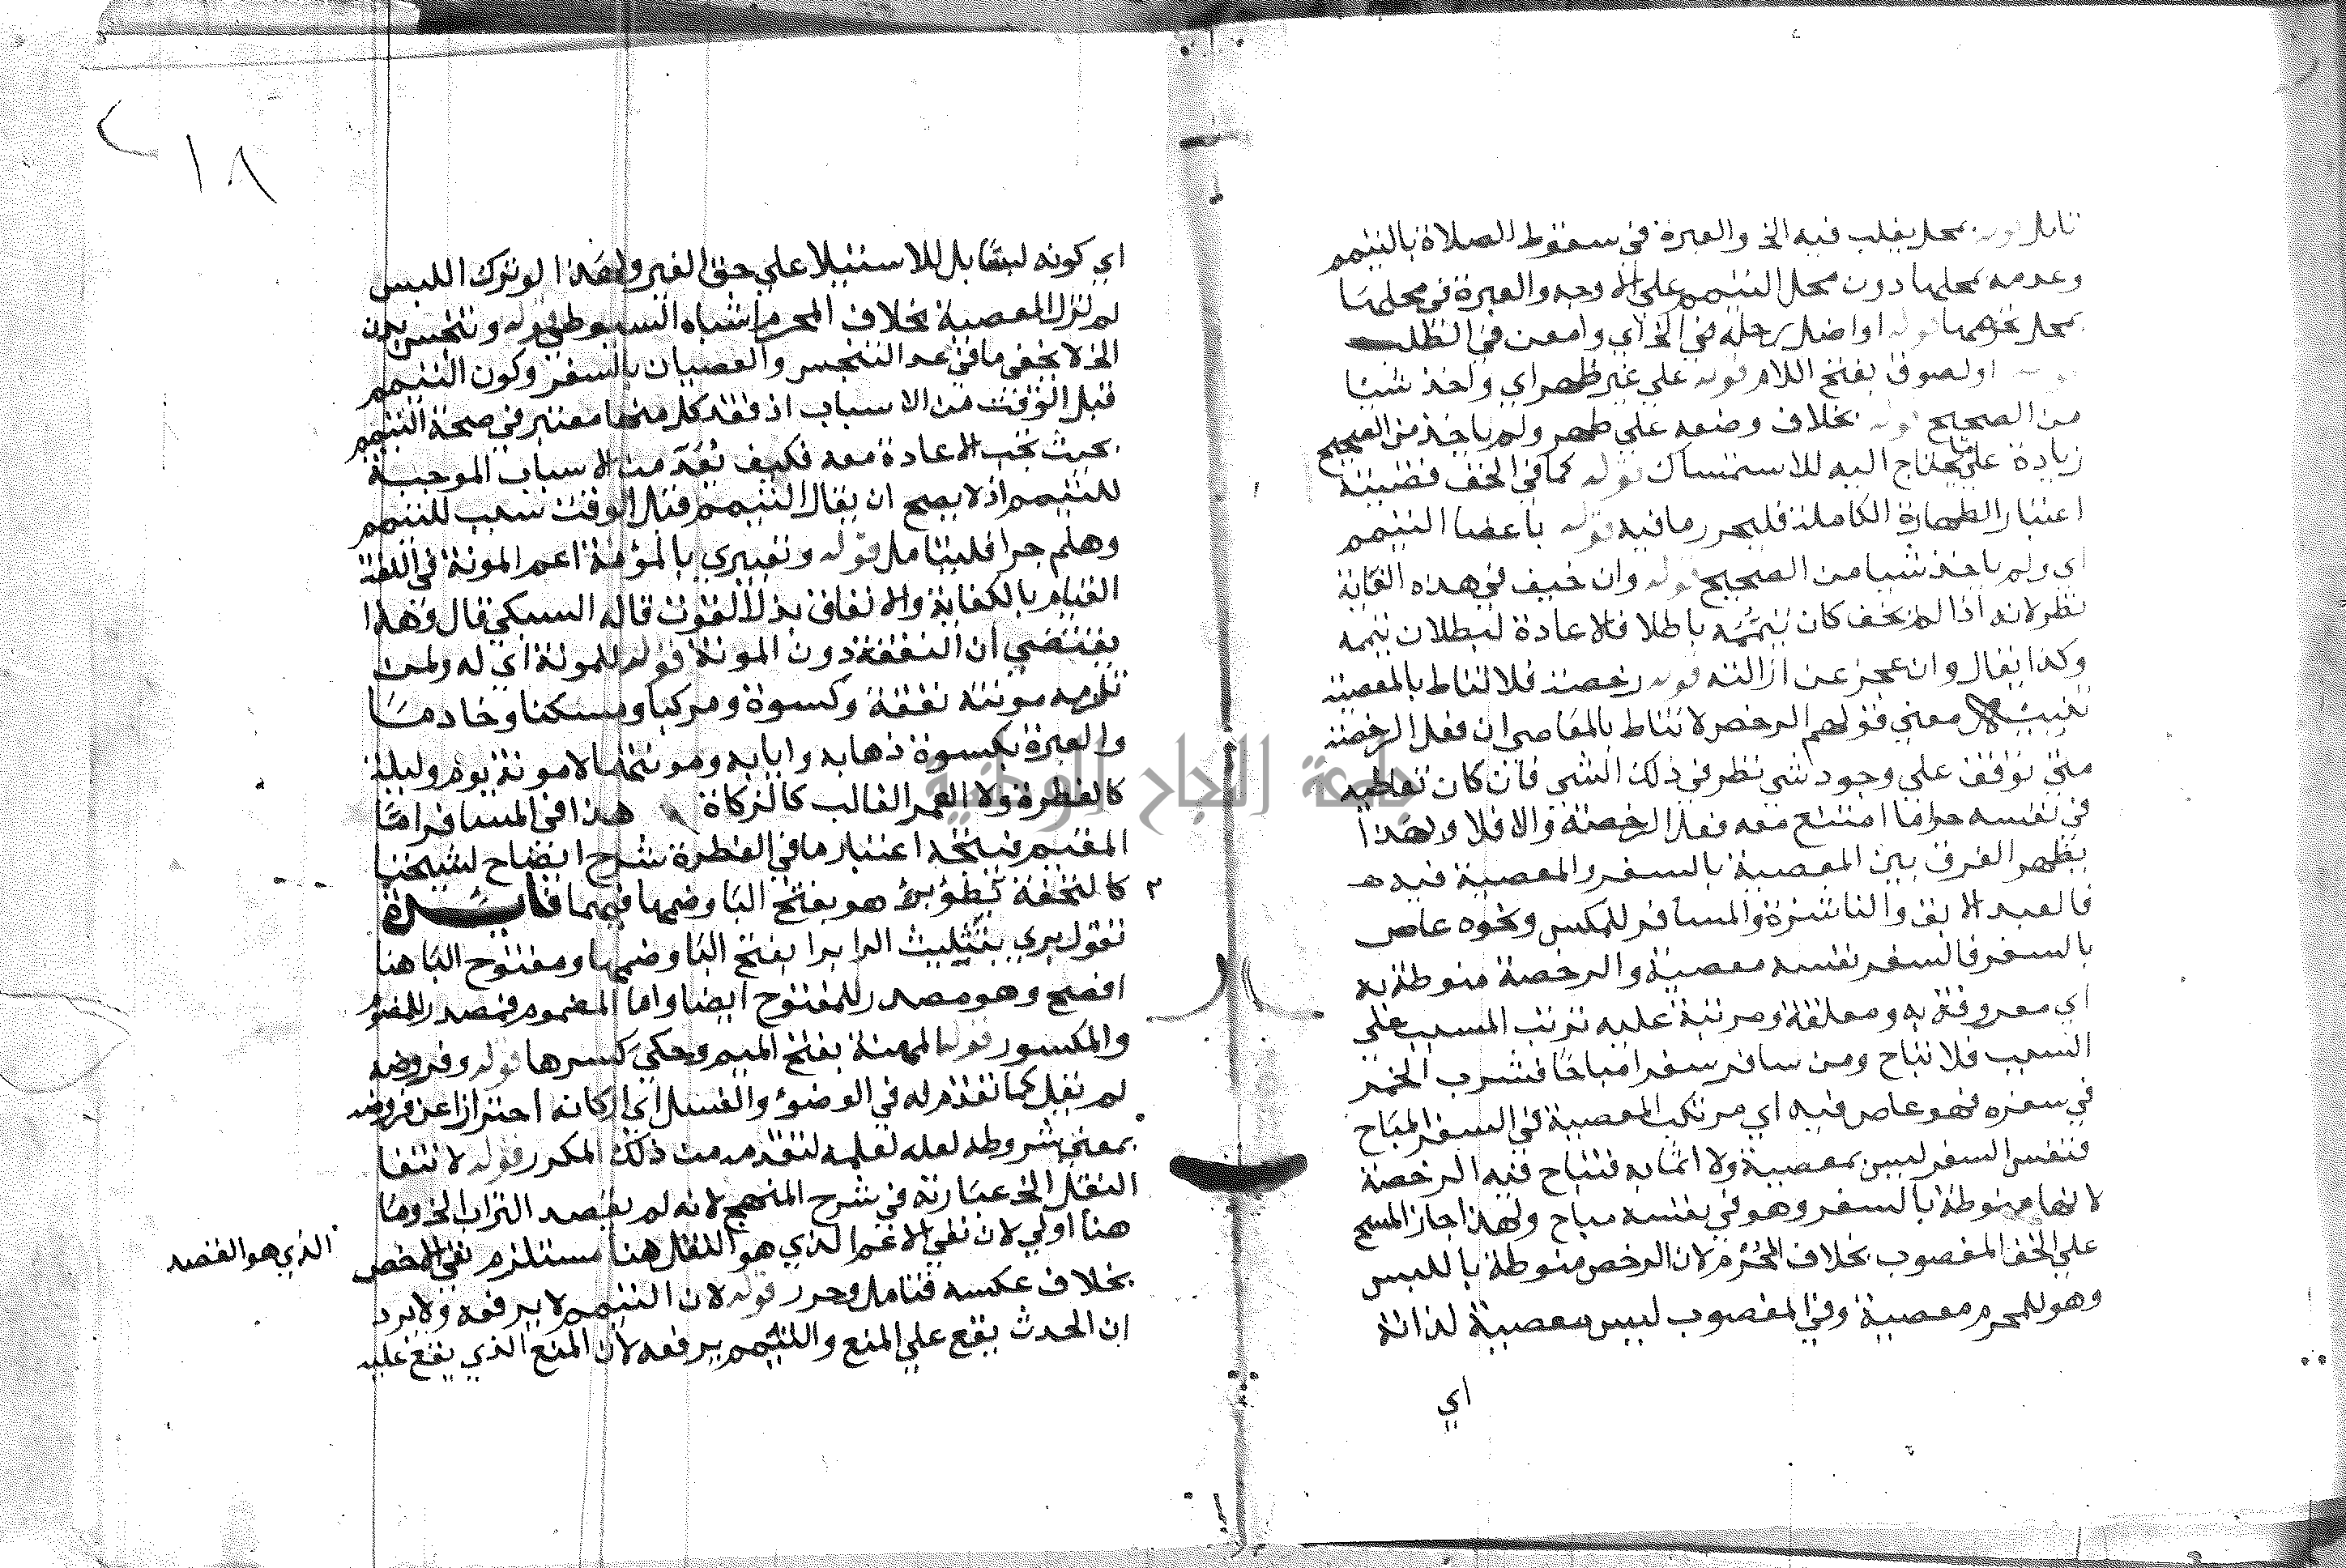 تامل قوله بمحل يغلب فيه الخ والعبرة في سقوط الصلاة بالتيمم
وعدمه بمحلها دون محل التيمم علي الاوجه والعبرة في محلها
بمحل تحرمها قوله او اضل رحله في الخ اي وامعن في الطلب
اولصوق بفتح اللام قوله علي غير طهر اي واخذ شيئا
من الصحيح قوله بخلاف وضعه علي طهر ولم ياخذ من الصحيح
زيادة علي ما يحتاج اليه للاستمساك قوله كما في الخف قضيته
اعتبار الطهارة الكاملة فليحرر مافيه قوله باعضا التيمم
اي ولم ياخذ شيا من الصحيح قوله وان خيف في هذه الغاية
نظر لانه اذا لم يخف كان تيممه باطلا فالاعادة لبطلان تيممه
وكذا يقال وان عجز عن ازالته قوله رخصة فلا تناط بالمعصية
تنبيه معني قولهم الرخص لا تناط بالمعاصي ان فعل الرخصة
متي توقف علي وجود شي نظر في ذلك الشي فان كان تعاطيه
في نفسه حراما امتنع معه فعل الرخصة والا فلا ولهذا
يظهر الفرق بين المعصية بالسفر والمعصية فيه
فالعبد الابق والناشزة والمسافر للمكس ونحوه عاص
بالسفر فالسفر نفسه معصية والرخصة منوطة به
اي معروفة به ومعلقة ومرتبة عليه ترتب المسبب علي
السبب فلا تباح ومن سافر سفرا مباحا فشرب الخمر
في سفره فهو عاص فيه اي مرتكب المعصية في السفر المباح
فنفس السفر ليس بمعصية ولا اثما به فتباح فيه الرخصة
لانها منوطة بالسفر وهو في نفسه مباح ولهذا جاز المسح
علي الخف المغصوب بخلاف المحرم لان الرخص منوطة باللبس
وهو للمحرم معصية وفي المغصوب ليس معصية لذاته
اي
٢١٨
اي كونه لبسا بل للاستيلا علي حق الغير ولهذا لو ترك اللبس
لم تزل المعصية بخلاف المحرم اشباه السيوطي قوله وتنجس بدن
الخ لا يخفي ما في عد التنجس والعصيان بالسفر وكون التيمم
قبل الوقت من الاسباب اذ فقد كل منها معتبر في صحة التيمم
بحيث تجب الاعادة معه فكيف تعد من الاسباب الموجبة
للتيمم اذ لا يصح ان يقال التيمم قبل الوقت سبب للتيمم
وهلم جرا فليتامل قوله وتعبيري بالمؤنة اعم المونة في اللغة
القيام بالكفاية والانفاق بذل القوت قاله السبكي قال وهذا
يقتضي ان النفقة دون المونة قوله للمونة اي له ولمن
تلزمه مونته نفقة وكسوة ومركبا ومسكنا وخادما
والعبرة بكسوة ذهابه وايابه ومونتهما لا مونة يوم وليلة
كالفطرة ولا العمر الغالب كالزكاة هذا في المسافر اما
المقيم فيتجه اعتبار ما في الفطرة شرح ايضاح لشيخنا
كالتحفة قوله بطؤ برء هو بفتح البا وضمها فيهما فايدة
تقول بري بتثليث الرا برا بفتح البا وضمها ومفتوح البا هنا
افصح وهو مصدر للمفتوح ايضا واما المضموم فمصدر للمضموم
والمكسور قوله المهنة بفتح الميم وحكي كسرها قوله وفروضه
لم يقل كما تقدم له في الوضؤ والغسل اي اركانه احترازا عن فروضه
بمعني شروطه لعله لعلمه لتقدمه من ذلك المكرر قوله لانتفا
النقل الخ عبارته في شرح المنهج لانه لم يقصد التراب الخ وما
هنا اولي لان نفي الاعم الذي هو النقل هنا مستلزم نفي الاخص
الذي هو القصد
بخلاف عكسه فتامل وحرر قوله لان التيمم لا يرفعه ولا يرد
ان الحدث يقع علي المنع والتيمم يرفعه لان المنع الذي يقع عليه
جامعة النجاح الوطنية